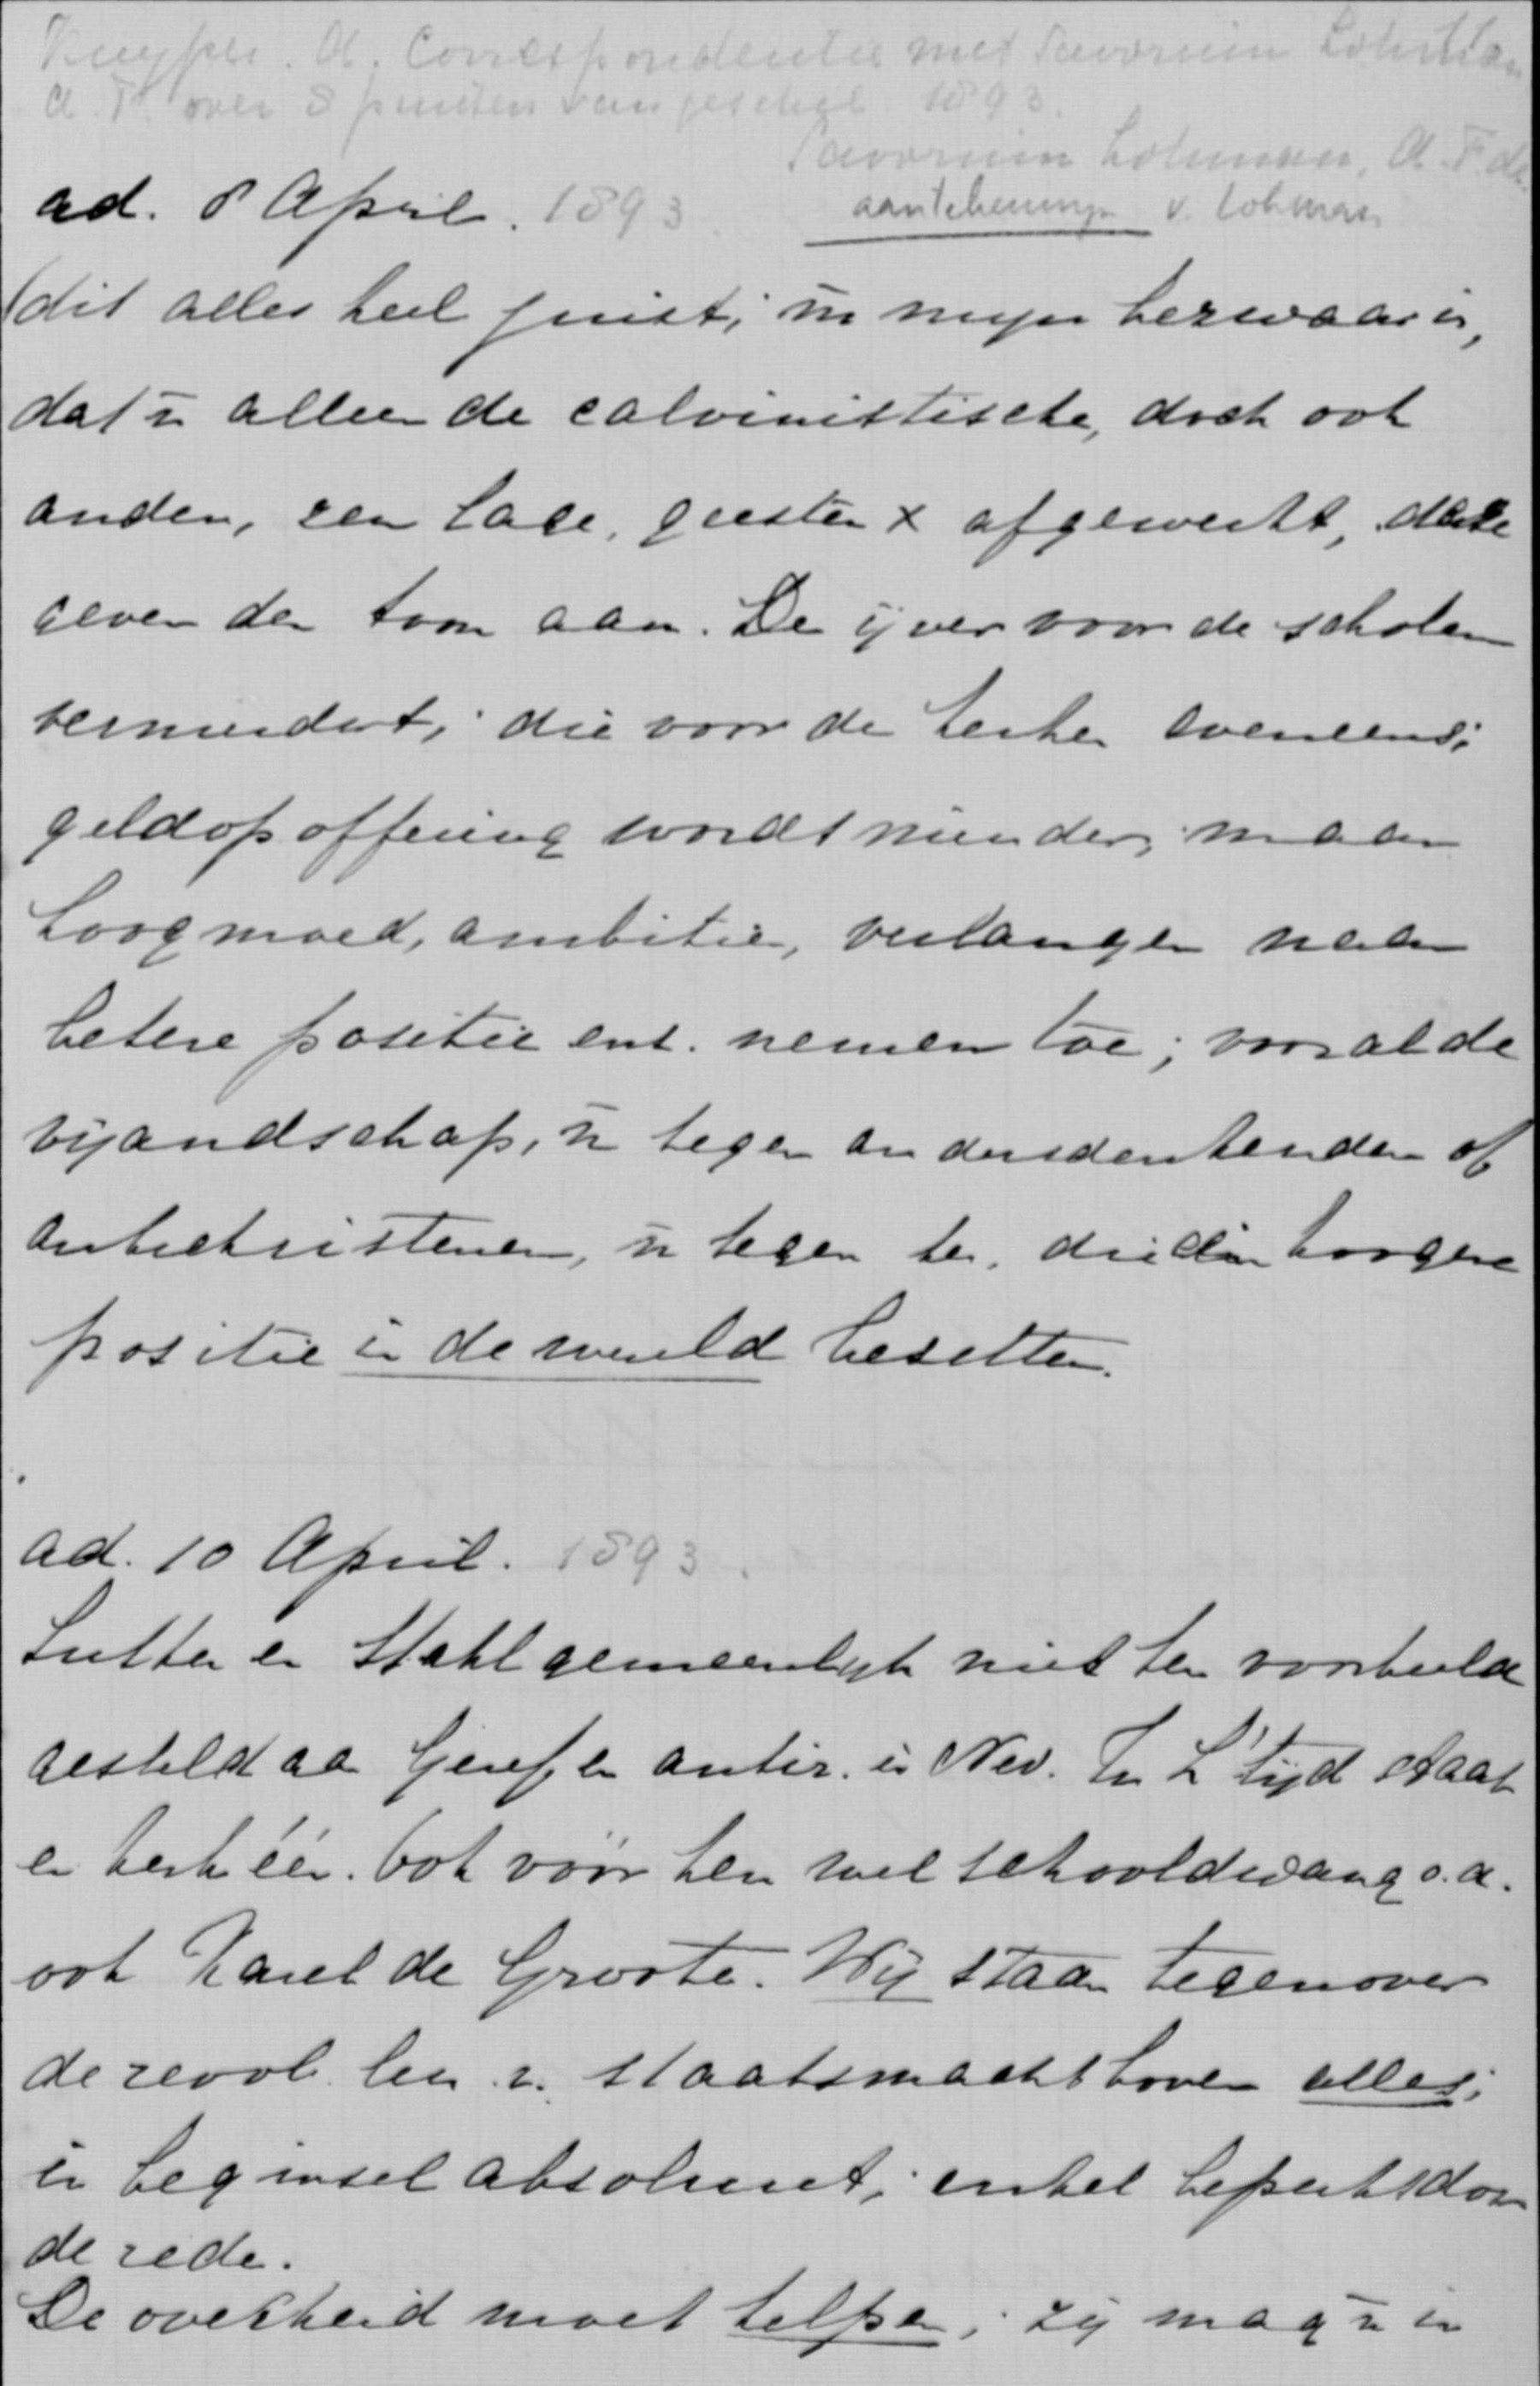 Kuyper. A. Correspondentie met Savornin Lohman
A. F. over 8 punten van geschil 1893.
Savornin Lohman, A. F. de
ad. 8 April. 1893 aantekeningen v. Lohman
(dit alles heel juist; mijn bezwaar is,
dat n̄ alleen de calvinistische, doch ook
andere, een lage, geesten x afgewerkt, deze
geven den toon aan. De ijver voor de scholen
vermindert; die voor de kerken eveneens;
geldopoffering wordt minder; maar
hoogmoed, ambitie, verlangen naar
betere positie enz. nemen toe; vooral de
vijandschap, n̄ tegen andersdenkenden of
antichristenen, n̄ tegen hen, die een hoogere
positie in de wereld bezetten.
ad. 10 April. 1893.
Luther en Stahl gemeenlijk niet ten voorbeeld
gesteld aan Geref. en antir. in Ned. In L' tijd staat
en kerk één. Ook vóór hen wel schooldwang o.a.
ook Karel de Groote. Wij staan tegenover
de revol. leer v. staatsmacht boven alles;
in beginsel absoluut; enkel beperkt door
de rede.
De overheid moet helpen; zij mag n̄ in